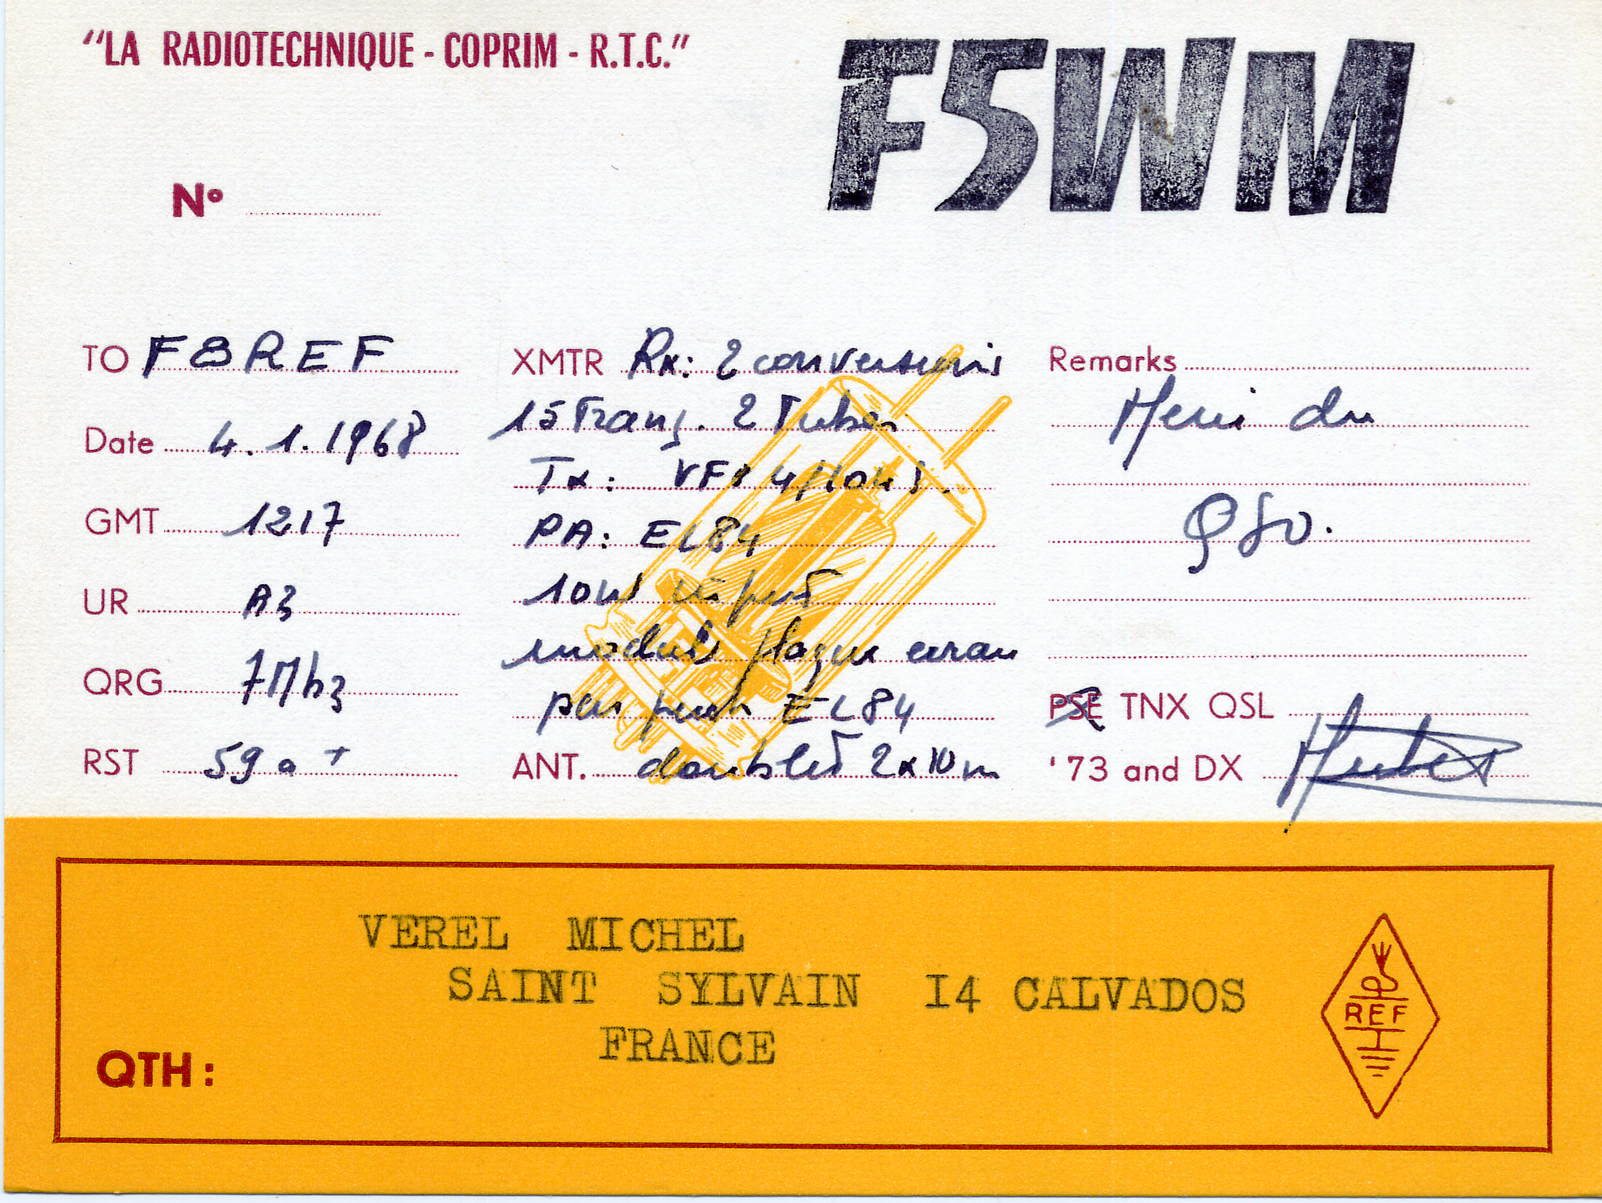 "LA RADIOTECHNIQUE - COPRIM - R.T.C."
F5WM
N°
TO F8REF
Date 4.1.1968
GMT 1217
UR A3
QRG 7Mhz
RST 59 a +
XMTR Rx: 2 conversions
15 Trans. 2 Tubes
Tx: VFO 4
PA: EL84
10W input
modul plaque ecran
par push EL84
ANT. doublet 2x10m
Remarks
Merci du
QSO.
PSE TNX QSL
'73 and DX
VEREL MICHEL
SAINT SYLVAIN I4 CALVADOS
FRANCE
QTH:
REF